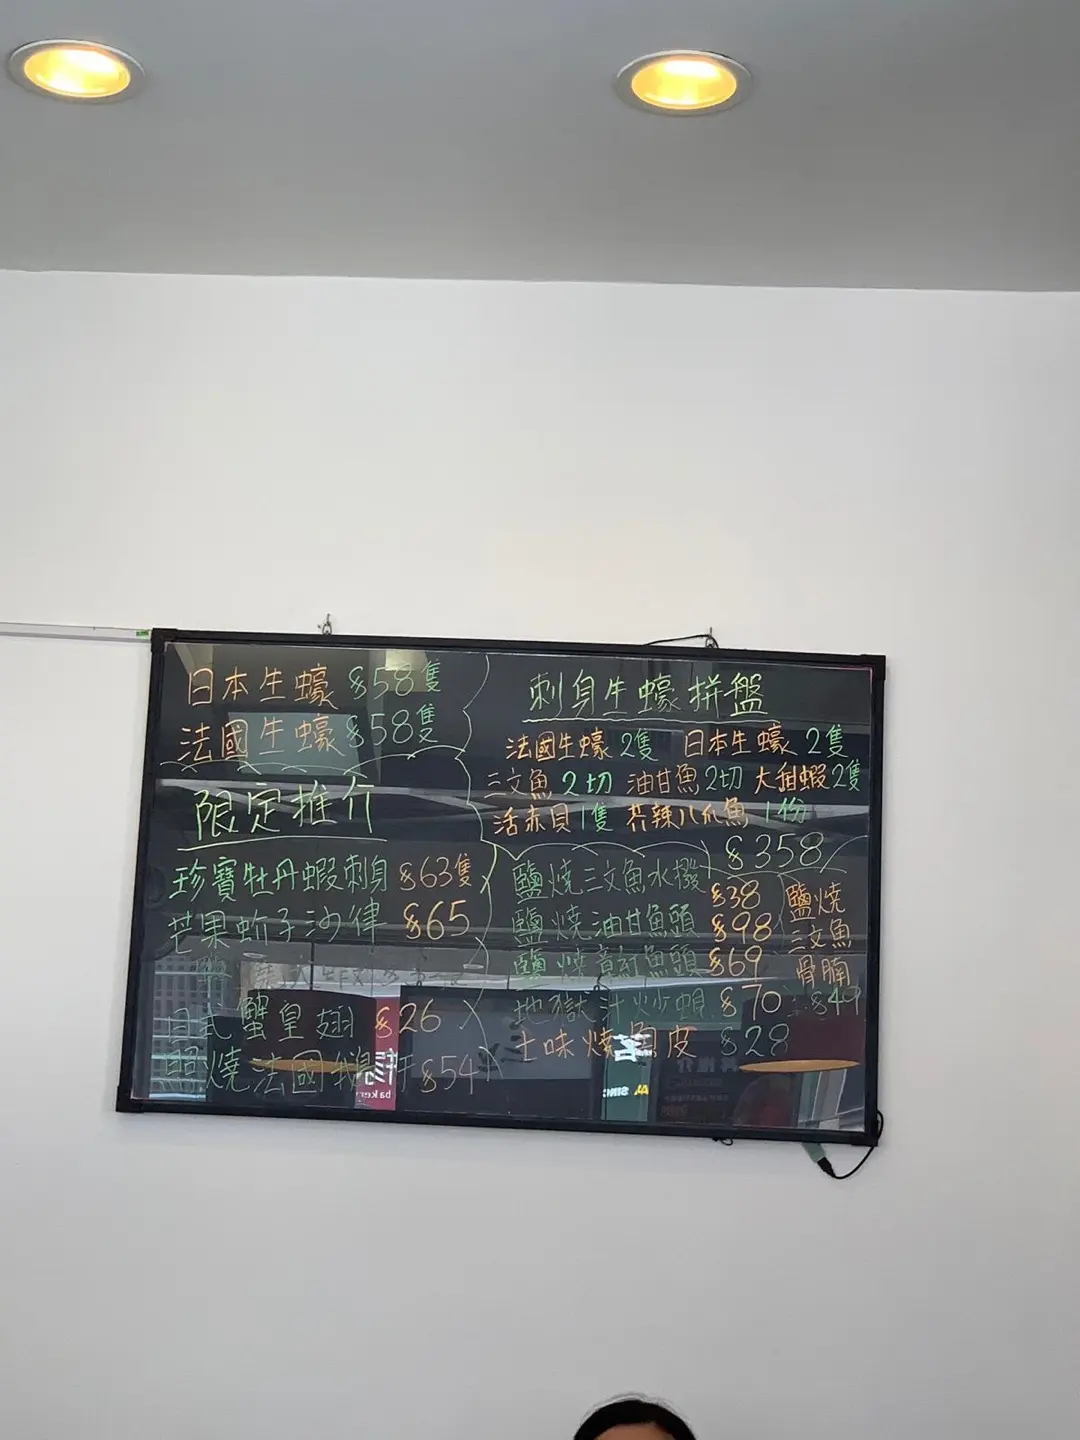 日本生蠔 $58隻
法國生蠔 $58隻
限定推介
珍寶牡丹蝦刺身 $63隻
芒果蚧子沙律 $65
日式蟹皇翅 $26
照燒法國 $54
刺身生蠔拼盤
法國生蠔 2隻 日本生蠔 2隻
三文魚 2切 油甘魚 2切 大甜蝦 2隻
活赤貝 1隻 芥辣八爪魚 1份
$358
鹽燒三文魚水撥 $38
鹽燒油甘魚頭 $98
鹽燒章紅魚頭 $69
地獄汁炒蜆 $70
七味燒魚皮 $28
鹽燒
三文魚
骨腩
$49